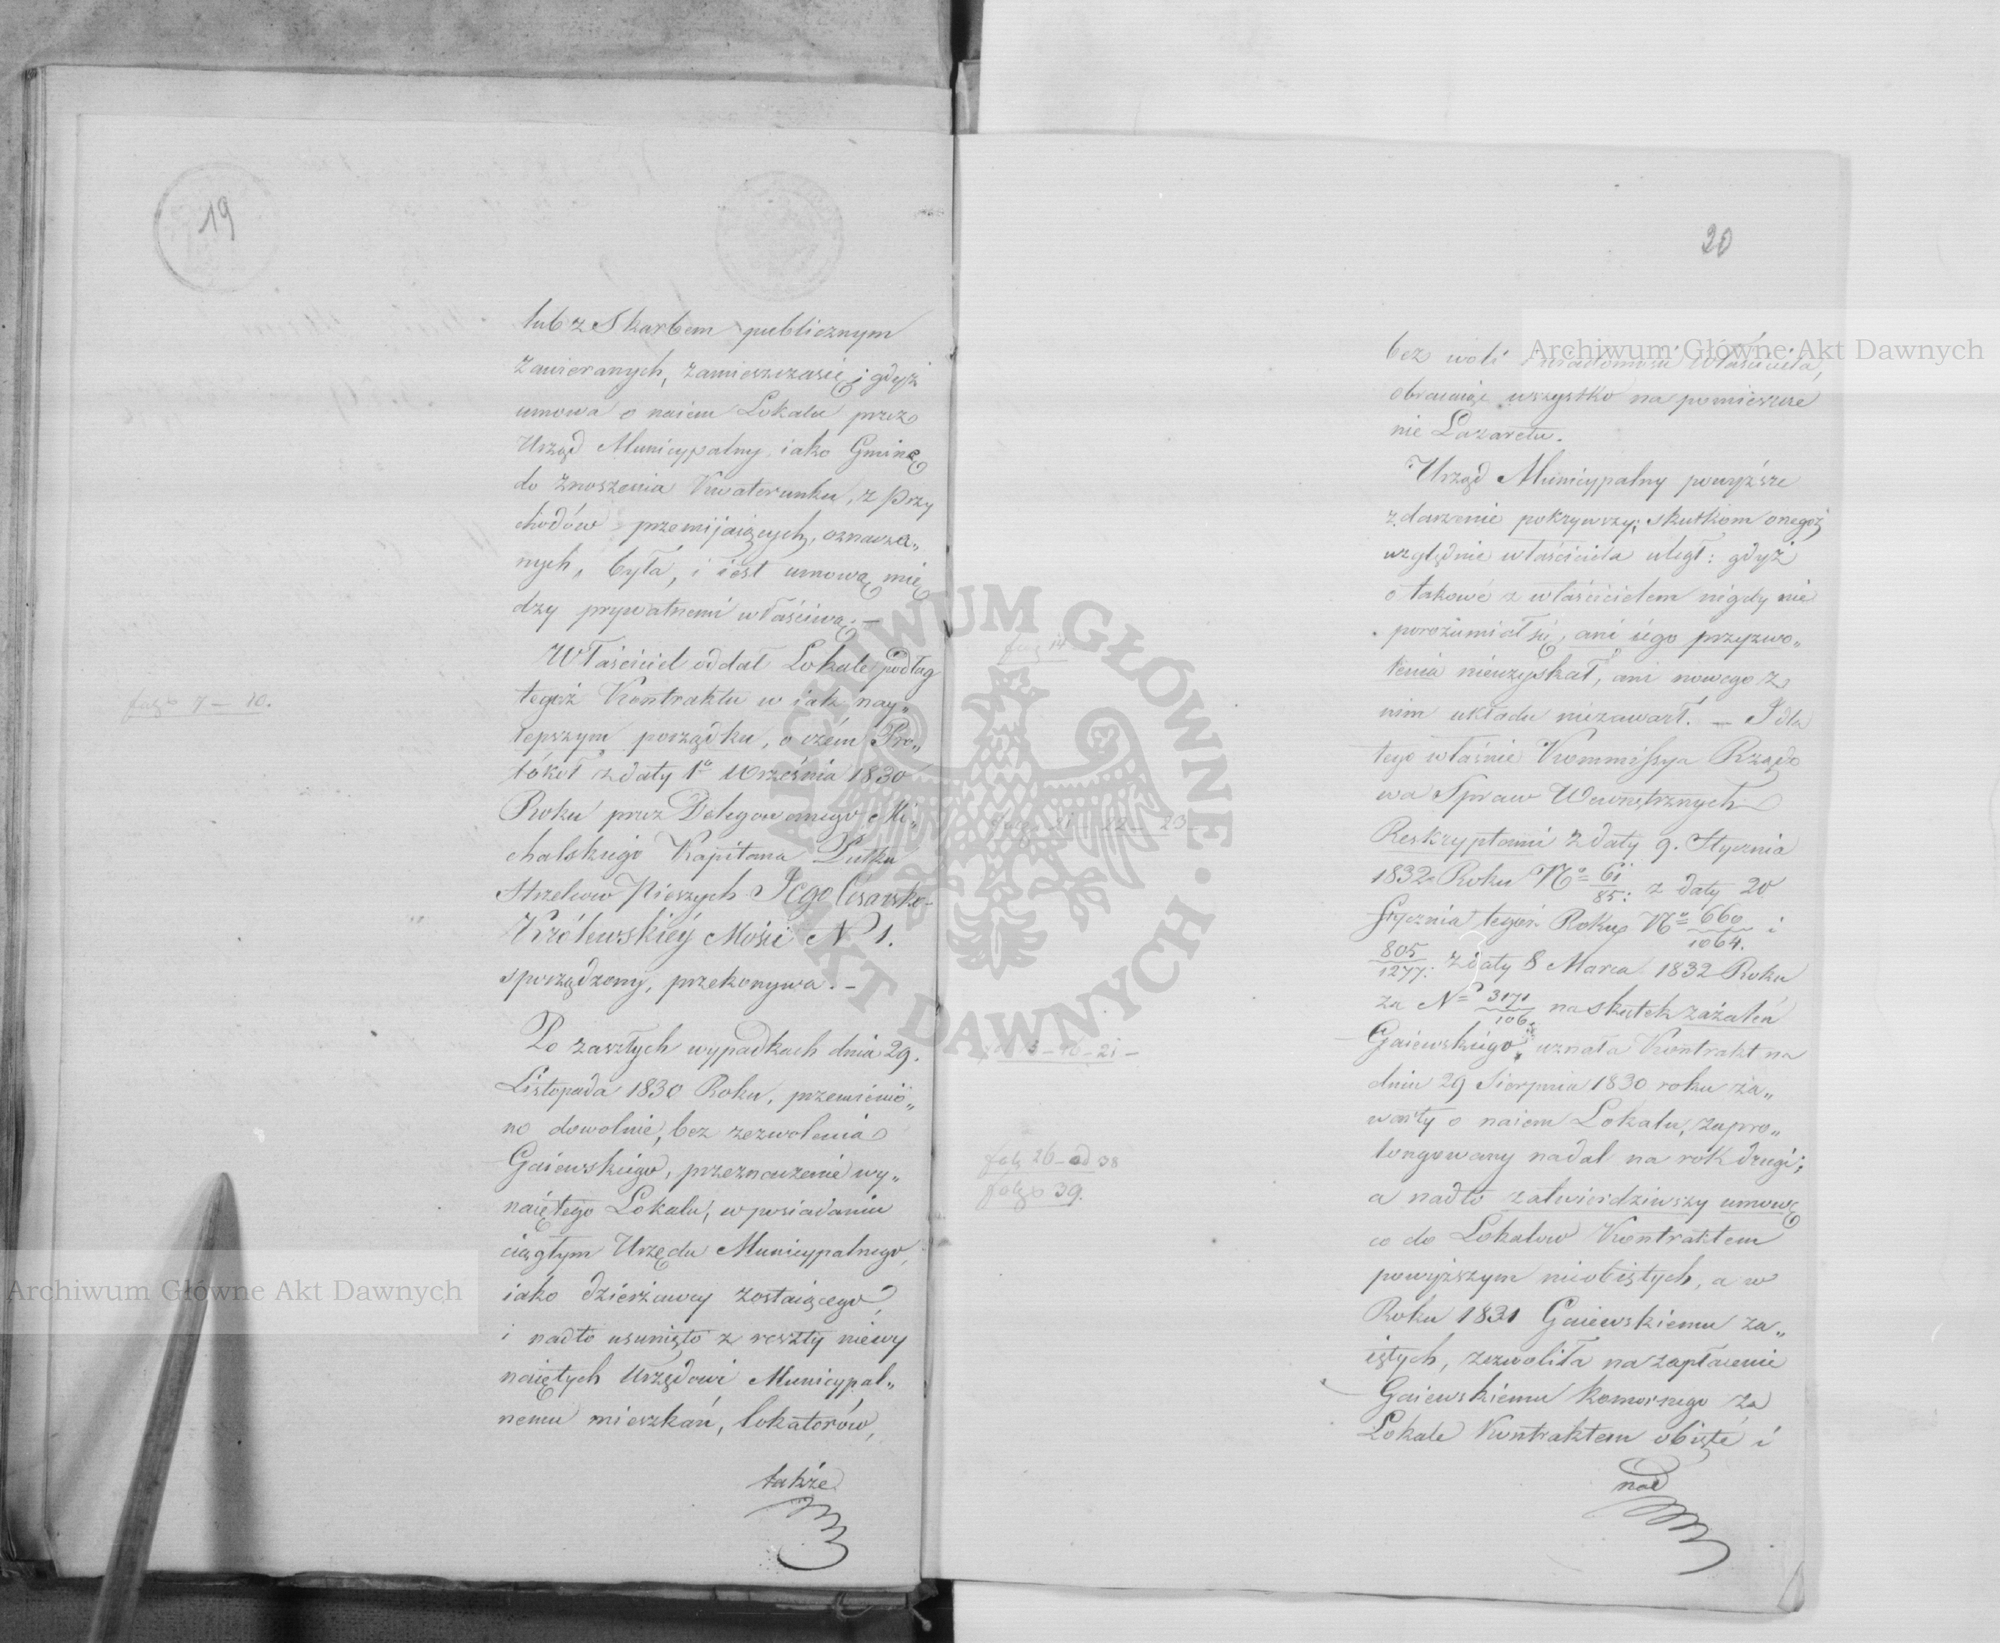 19
lub z Skarbem publicznym
zawieranych, zamieszczasię; gdyż
umowa o naiem Lokalu przez
Urząd Municypalny, iako Gminę
do znoszenia Kwaterunku, z przy
chodów przemijaiących, oznaczo„
nych, była, i iest umową mię
dzy prywatnemi właściwą. —
Właściciel oddał Lokale podług
tegoż Kontraktu w iak nay„
lepszym porządku, o czém Pro„
tókół z daty 1o Września 1830
Roku przez Delegowanego Mi„
chalskiego Kapitana Pułku
Strzelców Pieszych Jego Cesarsko-
Królewskiéy Mości N 1.
sporządzony, przekonywa. —
Po zaszłych wypadkach dnia 29.
Listopada 1830 Roku, przemienio„
no dowolnie, bez zezwolenia
Gaiewskiego, przeznaczenie wy„
naiętego Lokalu, w posiadaniu
ciągłym Urzędu Municypalnego,
iako dzierżawcy zostaiącego,
i nadto usunięto z reszty niewy
naiętych Urzędowi Municypal„
nemu mieszkań, lokatorów,
także
fol: 7 — 10.
20
bez woli i wiadomości Właściciela,
obracaiąc wszystko na pomieszcze
nie Lazaretu.
Urząd Municypalny powyższe
zdarzenie pokrywszy; skutkom onegoż
względnie właściciela uległ: gdyż
o takowe z właścicielem nigdy nie
porozumiał się, ani iego przyzwo„
lenia nieuzyskał, ani nowego z
nim układu niezawarł. — I dla
tego właśnie Kommissya Rządo
wa Spraw Wewnętrznych
Reskryptami z daty 9. Stycznia
1832 Roku No 61/85: z daty 20
Stycznia tegoż Roku No 660/1064. i
805/1277: z daty 8 Marca 1832 Roku
za No 3171/106 na skutek zażaleń
Gaiewskiego, uznała Kontrakt na
dniu 29 Sierpnia 1830 roku za„
warty o naiem Lokalu, zapro„
longowany nadal na rok drugi;
a nadto zatwierdziwszy umowę
co do Lokalów Kontraktem
powyższym nieobiętych, a w
Roku 1831 Gaiewskiemu za„
iętych, zezwoliła na zapłacenie
Gaiewskiemu komornego za
Lokale Kontraktem obięte i
nad
fol: 14
fol: 21 — 22 — 23
fol: 26 — od 38
fol: 39.
Archiwum Główne Akt Dawnych
Archiwum Główne Akt Dawnych
ARCHIWUM GŁÓWNE AKT DAWNYCH